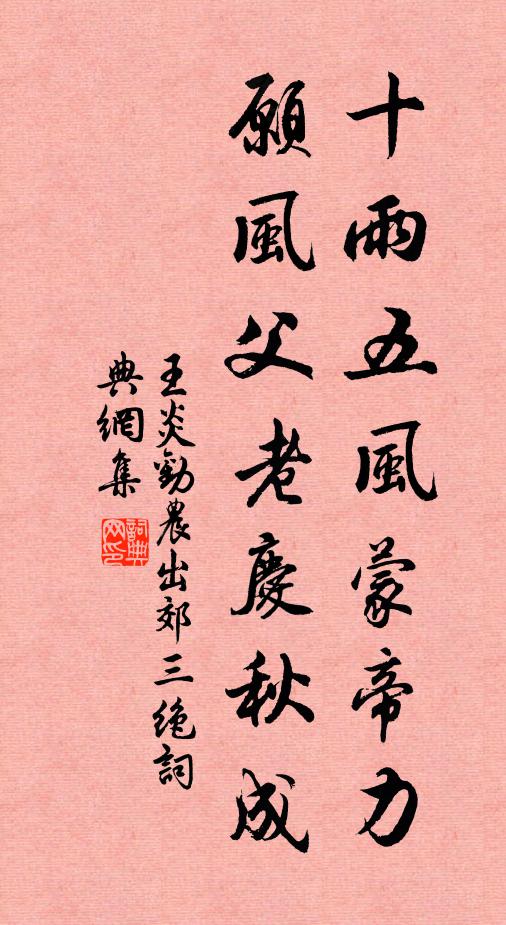 十雨五風蒙帝力
願風父老慶秋成
王炎勸農出郊三絶詞
典網集
詞典
网印